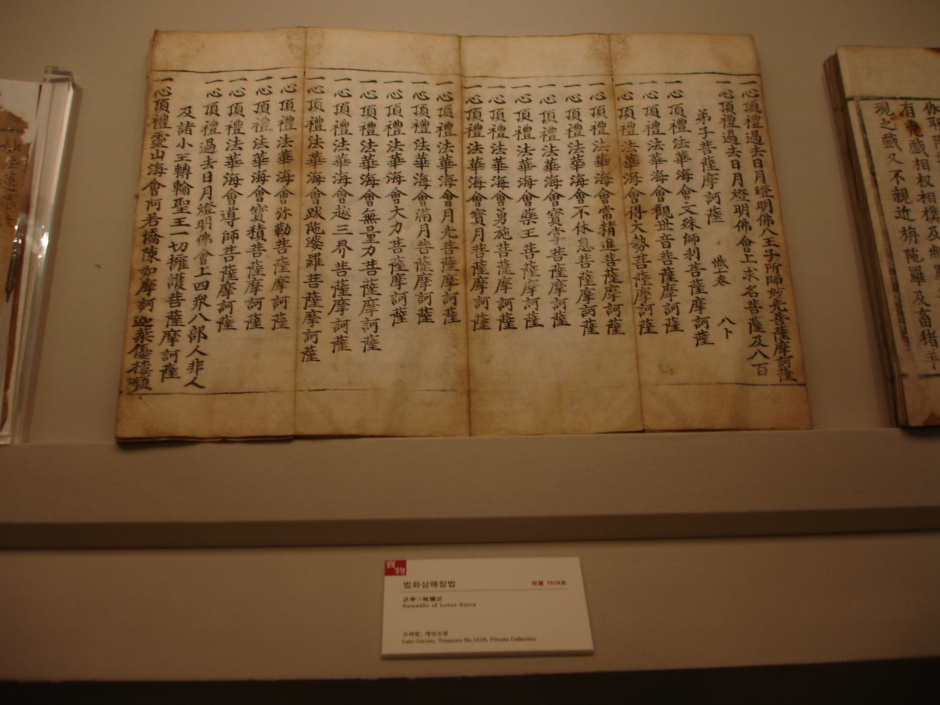 一心頂禮過去日月燈明佛八王子所師妙光菩薩摩訶薩
一心頂禮過去日月燈明佛會上求名菩薩及八百
弟子菩薩摩訶薩 八卜
一心頂禮法華海會文殊師利菩薩摩訶薩
一心頂禮法華海會觀世音菩薩摩訶薩
一心頂禮法華海會得大勢菩薩摩訶薩
一心頂禮法華海會常精進菩薩摩訶薩
一心頂禮法華海會不休息菩薩摩訶薩
一心頂禮法華海會寶掌菩薩摩訶薩
一心頂禮法華海會藥王菩薩摩訶薩
一心頂禮法華海會勇施菩薩摩訶薩
一心頂禮法華海會寶月菩薩摩訶薩
一心頂禮法華海會月光菩薩摩訶薩
一心頂禮法華海會滿月菩薩摩訶薩
一心頂禮法華海會大力菩薩摩訶薩
一心頂禮法華海會無量力菩薩摩訶薩
一心頂禮法華海會越三界菩薩摩訶薩
一心頂禮法華海會跋陁婆羅菩薩摩訶薩
一心頂禮法華海會弥勒菩薩摩訶薩
一心頂禮法華海會寶積菩薩摩訶薩
一心頂禮法華海會導師菩薩摩訶薩
一心頂禮過去日月燈明佛會上四衆八部人非人
及諸小王轉輪聖王一切擁護菩薩摩訶薩
一心頂禮靈山海會阿若憍陳如摩訶迦葉優樓頻
現之戱又不親近旃陀羅及畜猪羊
寶物
법화삼매참법
Samadhi of Lotus Sutra
고려말, 개인소장
Late Goryeo, Treasure No. Private Collection